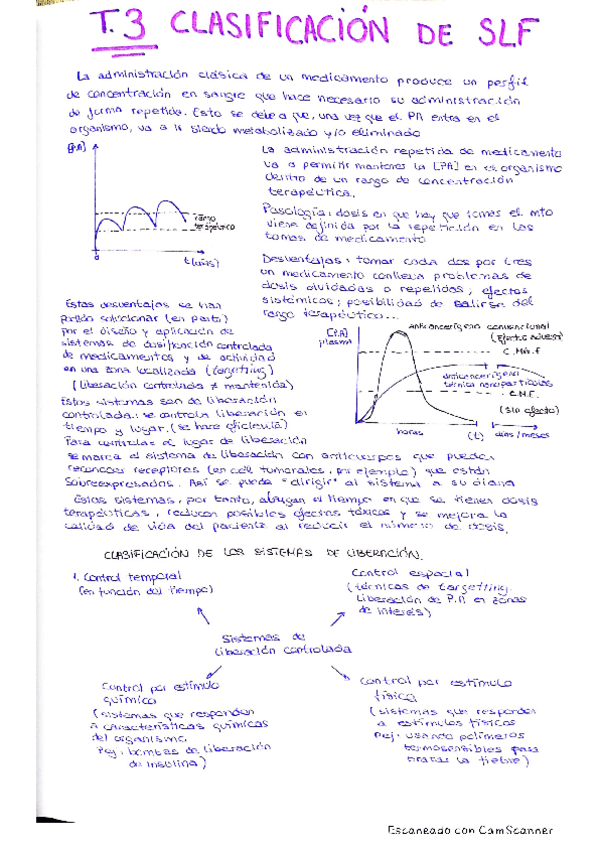 T.3 CLASIFICACIÓN DE SLF
La administración clásica de un medicamento produce un perfil
de concentración en sangre que hace necesario su administración
de forma repetida. Esto se debe a que, una vez que el PA entra en el
organismo, va a ir siendo metabolizado y/o eliminado
[PA]
rango
terapéutico
t (días)
La administración repetida de medicamento
va a permitir mantener la [PA] en el organismo
dentro de un rango de concentración
terapéutica.
Posología: dosis en que hay que tomar el mto
viene definida por la repetición en las
tomas de medicamento
Desventajas: tomar cada dos por tres
un medicamento conlleva problemas de
dosis olvidadas o repetidas; efectos
sistémicos; posibilidad de salirse del
rango terapéutico...
Estas desventajas se han
podido solucionar (en parte)
por el diseño y aplicación de
sistemas de dosificación controlada
de medicamentos y de actividad
en una zona localizada (targetting)
(liberación controlada ≠ mantenida)
Estos sistemas son de liberación
controlada: se controla liberación en
tiempo y lugar.
Para controlar el lugar de liberación
se marca el sistema de liberación con anticuerpos que puedan
reconocer receptores (en cél tumorales, por ejemplo) que están
sobreexpresados. Así se puede "dirigir" al sistema a su diana
Estos sistemas, por tanto, alargan el tiempo en que se tienen dosis
terapéuticas, reducen posibles efectos tóxicos y se mejora la
calidad de vida del paciente al reducir el número de dosis.
[PA]
plasma
anticancerígeno convencional
C. Máx. E
anticancerígeno
técnica nanopartículas
C.M.E.
(sin efecto)
horas
(t)
días/meses
CLASIFICACIÓN DE LOS SISTEMAS DE LIBERACIÓN.
1. Control temporal
(en función del tiempo)
Control espacial
(técnicas de targetting.
Liberación de P.A en zonas
de interés)
Sistemas de
liberación controlada
Control por estímulo
químico
(sistemas que responden
a características químicas
del organismo
Pej: bombas de liberación
de insulina)
Control por estímulo
físico
(sistemas que responden
a estímulos físicos
Pej: usando polímeros
termosensibles para
tratar la fiebre)
Escaneado con CamScanner